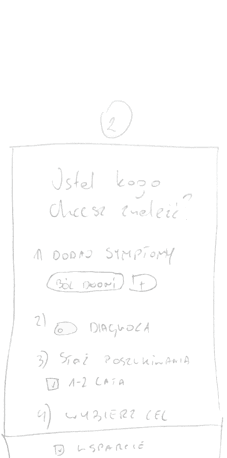 2
Ustal kogo
chcesz znaleźć
1) DODAJ SYMPTOMY
BÓL DŁONI +
2) DIAGNOZA
3) STAŻ POSZUKIWANIA
1-2 LATA
4) WYBIERZ CEL
WSPARCIE